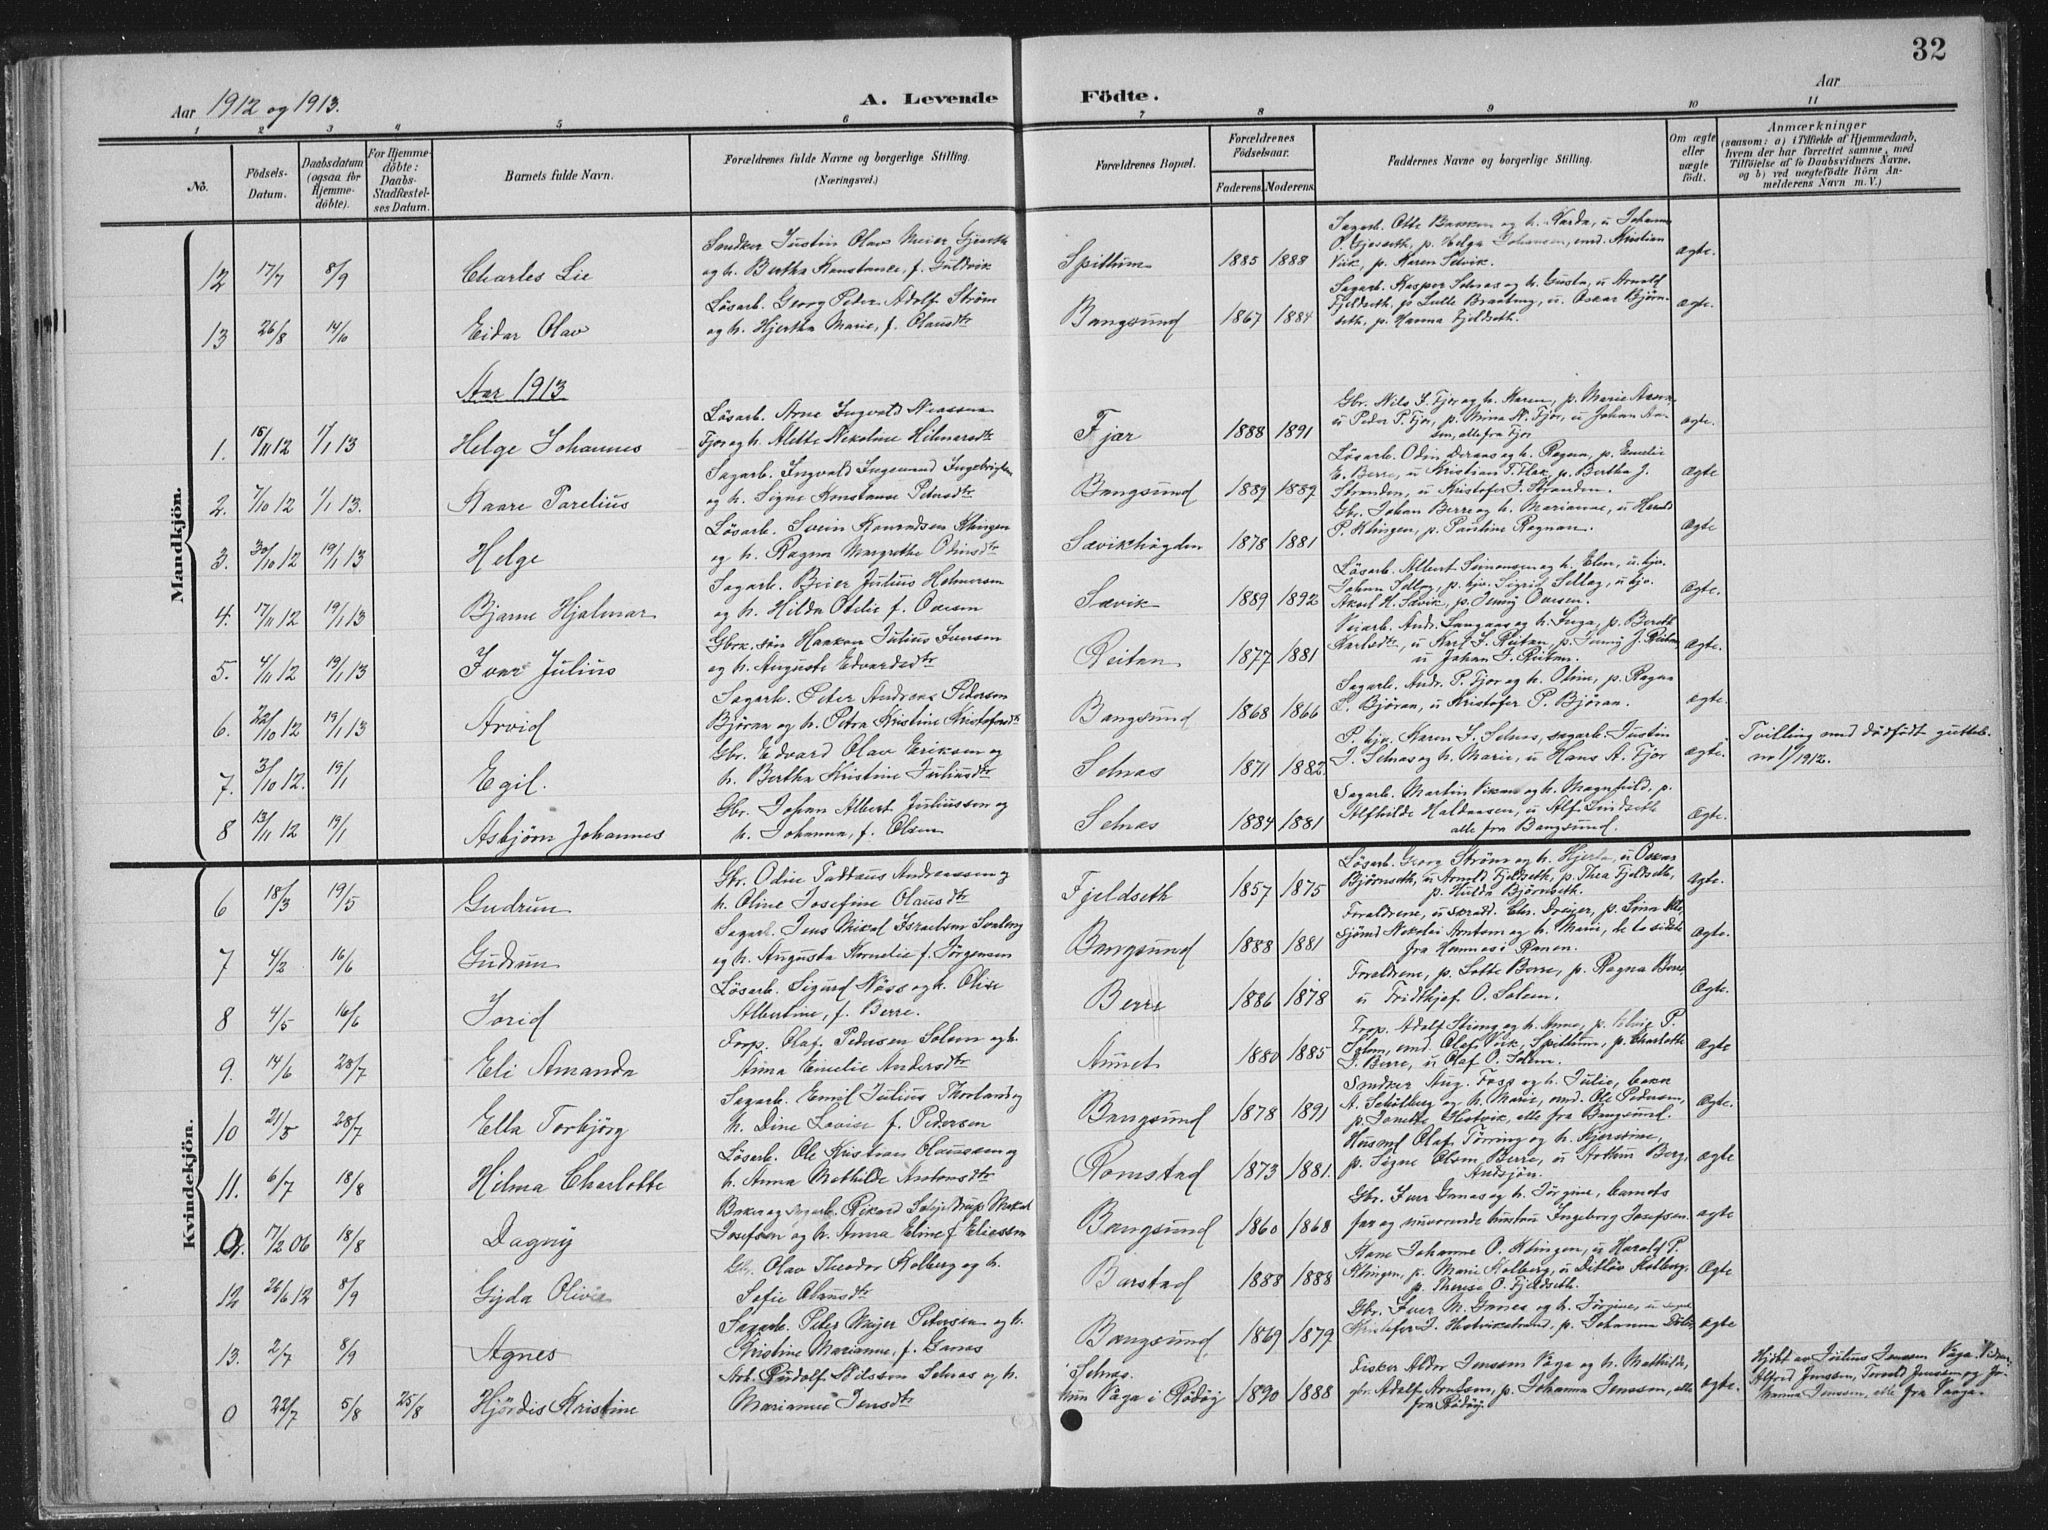 32
Aar 1912 og 1913.
A. Levende Födte.
Aar
1 2 3 4 5 6 7 8 9 10 11
No.
Födsels-Datum.
Daabsdatum (ogsaa for Hjemme-döbte).
For Hjemme-döbte: Daabs-Stadfæstel-ses Datum.
Barnets fulde Navn.
Forældrenes fulde Navne og borgerlige Stilling.
(Næringsvei.)
Forældrenes Bopæl.
Forældrenes Födselsaar.
Faderens. Moderens.
Faddernes Navne og borgerlige Stilling.
Om ægte eller uægte födt.
Anmærkninger
(saasom: a) i Tilfælde af Hjemmedaab,
hvem der har forrettet samme, med
Tilföielse af to Daabsvidners Navne.
og b) ved uægtefödte Börn An-
melderens Navn m. V.)
Mandkjön.
12 17/7 8/9 Charles Lie
Smedker Justin Olav Meier Gjeseth
og h. Bertha Konstance, f. Guldvik
Spillum 1885 1888
Sagarb. Otto Bakken og h. Varda, u Johannes
O. Gjeseth, p. Helga Johansen, smd. Kristian
Vik, p. Karen Selvik.
ægte.
13 26/8 14/10 Eidar Olav
Løsarb. Georg Peder Adolf Strøm
og h. Hjertha Marie, f. Olausdtr
Bangsund 1867 1884
Sagarb. Kasper Selnæs og h. Gusta, u Arnold
Fjeldseth, p Lulle Braateng, u. Oskar Bjørn-
seth, p. Hanna Fjeldseth.
ægte.
Aar 1913
1. 15/11 12 1/1 13 Helge Johannes
Løsarb. Arne Ingvald
Fjær og h. Alette Nikoline Hilmarsdtr
Fjær 1888 1891
Gbr. Nils J. Fjær og h. Karen, p. Marie
u Peder P. Fjær, p. Mina N. Fjær, u Johan
sen, alle fra Fjær
ægte.
2. 7/10 12 1/1 13. Kaare Parelius
Sagarb. Ingvald Ingemund Ingebrigtsen
og h. Signe Konstanse Petersdtr
Bangsund 1889 1889
Løsarb. Odin Deraas og h. Ragna, p. Emelie
E. Berre, u Kristian T. Flak, p. Bertha J.
Stranden, u Kristofer J. Stranden.
ægte
3. 30/10 12 19/1 13 Helge
Løsarb. Svein Konradsen Klingen
og h. Ragna Margrethe Odinsdtr
Sævikhøgden 1878 1881
Gbr. Johan Berre og h. Marianne, u Harald
P. Klingen, p. Pauline Ragnan.
ægte
4. 17/11 12 19/1 13 Bjarne Hjalmar
Sagarb. Beier Julius Helmersen
og h. Hilda Otelie f. Ovesen
Sævik 1889 1892
Løsarb. Albert Simonsen og h. Elen, u. hjv.
Johan Sellæg, p. hjv. Sigrid Sellæg, u hjv.
Aksel H. Sævik, p. Jenny Ovesen.
ægte.
5. 4/11 12 19/1 13 Ivar Julius
Gbrk. søn Haakon Julius Jensen
og h. Auguste Edvardsdtr
Reitan 1877 1881
Veiarb. Andr. Langaas og h. Inga, p. Bereth
Karlsdtr, u Karl J. Reitan, p. Jenny J. Reitan,
u Johan J. Reitan.
ægte.
6. 22/10 12 19/1 13 Arvid
Sagarb. Peter Andreas Pedersen
Bjøran og h. Petra Kristine Kristofersdtr
Bangsund 1868 1866
Sagarb. Andr. P. Fjær og h. Oline, p. Ragna
P. Bjøran, u Kristofer P. Bjøran.
ægte.
7. 3/10 12. 19/1 Egil.
Gbr. Edvard Olav Eriksen og
h. Bertha Kristine Juliusdtr
Selnæs 1871 1882.
P. hjv. Karen J. Selnæs, sagarb. Justin
J. Selnæs og h. Marie, u Hans A. Fjær
ægte.
Tvilling med dødfødt gutteb.
no 1/1912.
8 13/11 12 19/1 Asbjørn Johannes
Gbr. Johan Albert Juliussen og
h. Johanna, f. Olsen
Selnæs 1884 1881
Sagarb. Martin Vikan og h. Magnhild, p.
Alfhilde Haldansen, u Alf. Lindseth
alle fra Bangsund.
Ægte.
Kvindekjön.
6 18/3 19/5 Gudrun
Gbr. Odin Tadæus Andreassen og
h. Oline Josefine Olausdtr
Fjeldseth 1857 1875
Løsarb. Georg Strøm og h. Hjerta, u Oskar
Bjørnseth, u Arnold Fjeldseth, p. Thea Fjeldseth,
p. Hulda Bjørnseth.
ægte.
7 4/2 16/6 Gudrun
Sagarb. Jens Mikal Israelsen
og h. Augusta Kornelie f. Jørgensen
Bangsund 1888 1881
Forældrene, u Chr. Dreyer, p. Lina
Nikolai Arntsen og h. Marie, de to sidste
fra Hemnes i Ranen.
ægte.
8 4/5 16/6 Jorid
Løsarb. Sigurd Næss og h. Olise
Albertine, f. Berre.
Berre 1886 1878
Forældrene, p. Lotte Berre, p. Ragna Berre,
u Fridthjof O. Solem.
Ægte.
9. 14/6 28/7 Eli Amanda
Forp. Olaf Pedersen Solem og h.
Anna Emelie Andersdtr
Aunet 1880 1885
Forp. Adolf Strøm og h. Anna, p. P.
Solem, smd. Olaf Vik, Spillum, p. Charlotte
J. Berre, u Olaf O. Solem.
ægte
10 21/5 28/7 Ella Torbjørg
Sagarb. Emil Julius Thorland og
h. Dine Lovise f. Pedersen
Bangsund 1878 1891
Smedker Aug. Foss og h. Julie, baker
A. Schulberg og h. Marie, smd. Ole Pedersen,
p. Janette Hestvik, alle fra Bangsund.
ægte.
11. 6/7 18/8 Hilma Charlotte
Løsarb. Ole Kristian Olaussen og
h. Anna Mathilde Antonsdtr
Romstad 1873 1881.
Husmd Olaf Tørring og h. Kjerstine,
p. Signe Olsen Berre, u Arthur Berg,
Andsjøn.
ægte
0. 17/2 06 18/8 Dagny
Baker og sagarb. Rikard Schjeldrup Mikal
Josefsen og h. Anna Eline f. Eliassen
Bangsund 1860 1868
Gbr. Iver Ganæs og h. Jørgine, barnets
far og nuværende hustru Ingeborg Josefsen.
ægte
12 26/6 12 8/9 Gyda Olivie
Gbr. Olav Theodor Kolberg og h.
Sofie Olausdtr
Barstad 1888 1888
Kone Johanne O. Klingen, u Harald P.
Klingen, p. Marie Kolberg, u Ditlev Kolberg,
p. Therese O. Fjeldseth.
ægte
13. 2/7 8/9 Agnes
Sagarb. Peter Meyer Petersen og h.
Kristine Marianne, f. Ganæs
Bangsund. 1869 1879
Gbr. Iver M. Ganæs og h. Jørgine, u
Kristofer J. Hestvikstrand, p. Johanna
ægte
0 22/7 5/8 25/8 Hjørdis Kristine
Arb. Rudolf Nilssen Selnæs og h.
Marianne Jensdtr
Selnæs.
hun Vaga i Rødøy 1890 1888
Fisker Aldor Jenssen Vaga og h. Mathilde,
gbr. Adolf Arntsen, p. Johanna Jenssen, alle
fra Rødøy.
ægte.
Hjdbt av Julius Jenssen Vaga. Vidner:
Alfred Jenssen, Torvald Jenssen og Jo-
hanna Jenssen, alle fra Vaaga.